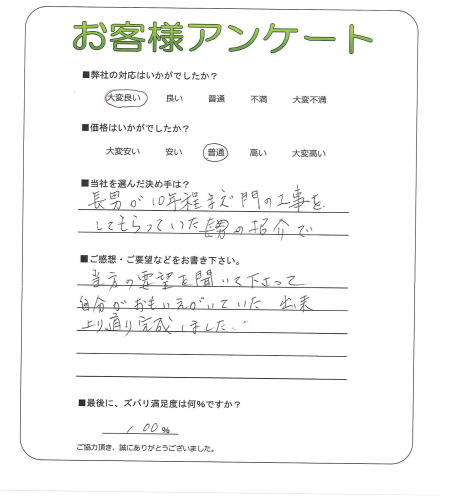 お客様アンケート
■弊社の対応はいかがでしたか？
大変良い 良い 普通 不満 大変不満
■価格はいかがでしたか？
大変安い 安い 普通 高い 大変高い
■当社を選んだ決め手は？
長男が10年程まで門の工事を
してもらっていた長男の紹介で
■ご感想・ご要望などをお書き下さい。
当方の要望を聞いて下さって
自分がおもいえがいていた 出来
上り通り完成しました。
■最後に、ズバリ満足度は何％ですか？
100％
ご協力頂き、誠にありがとうございました。